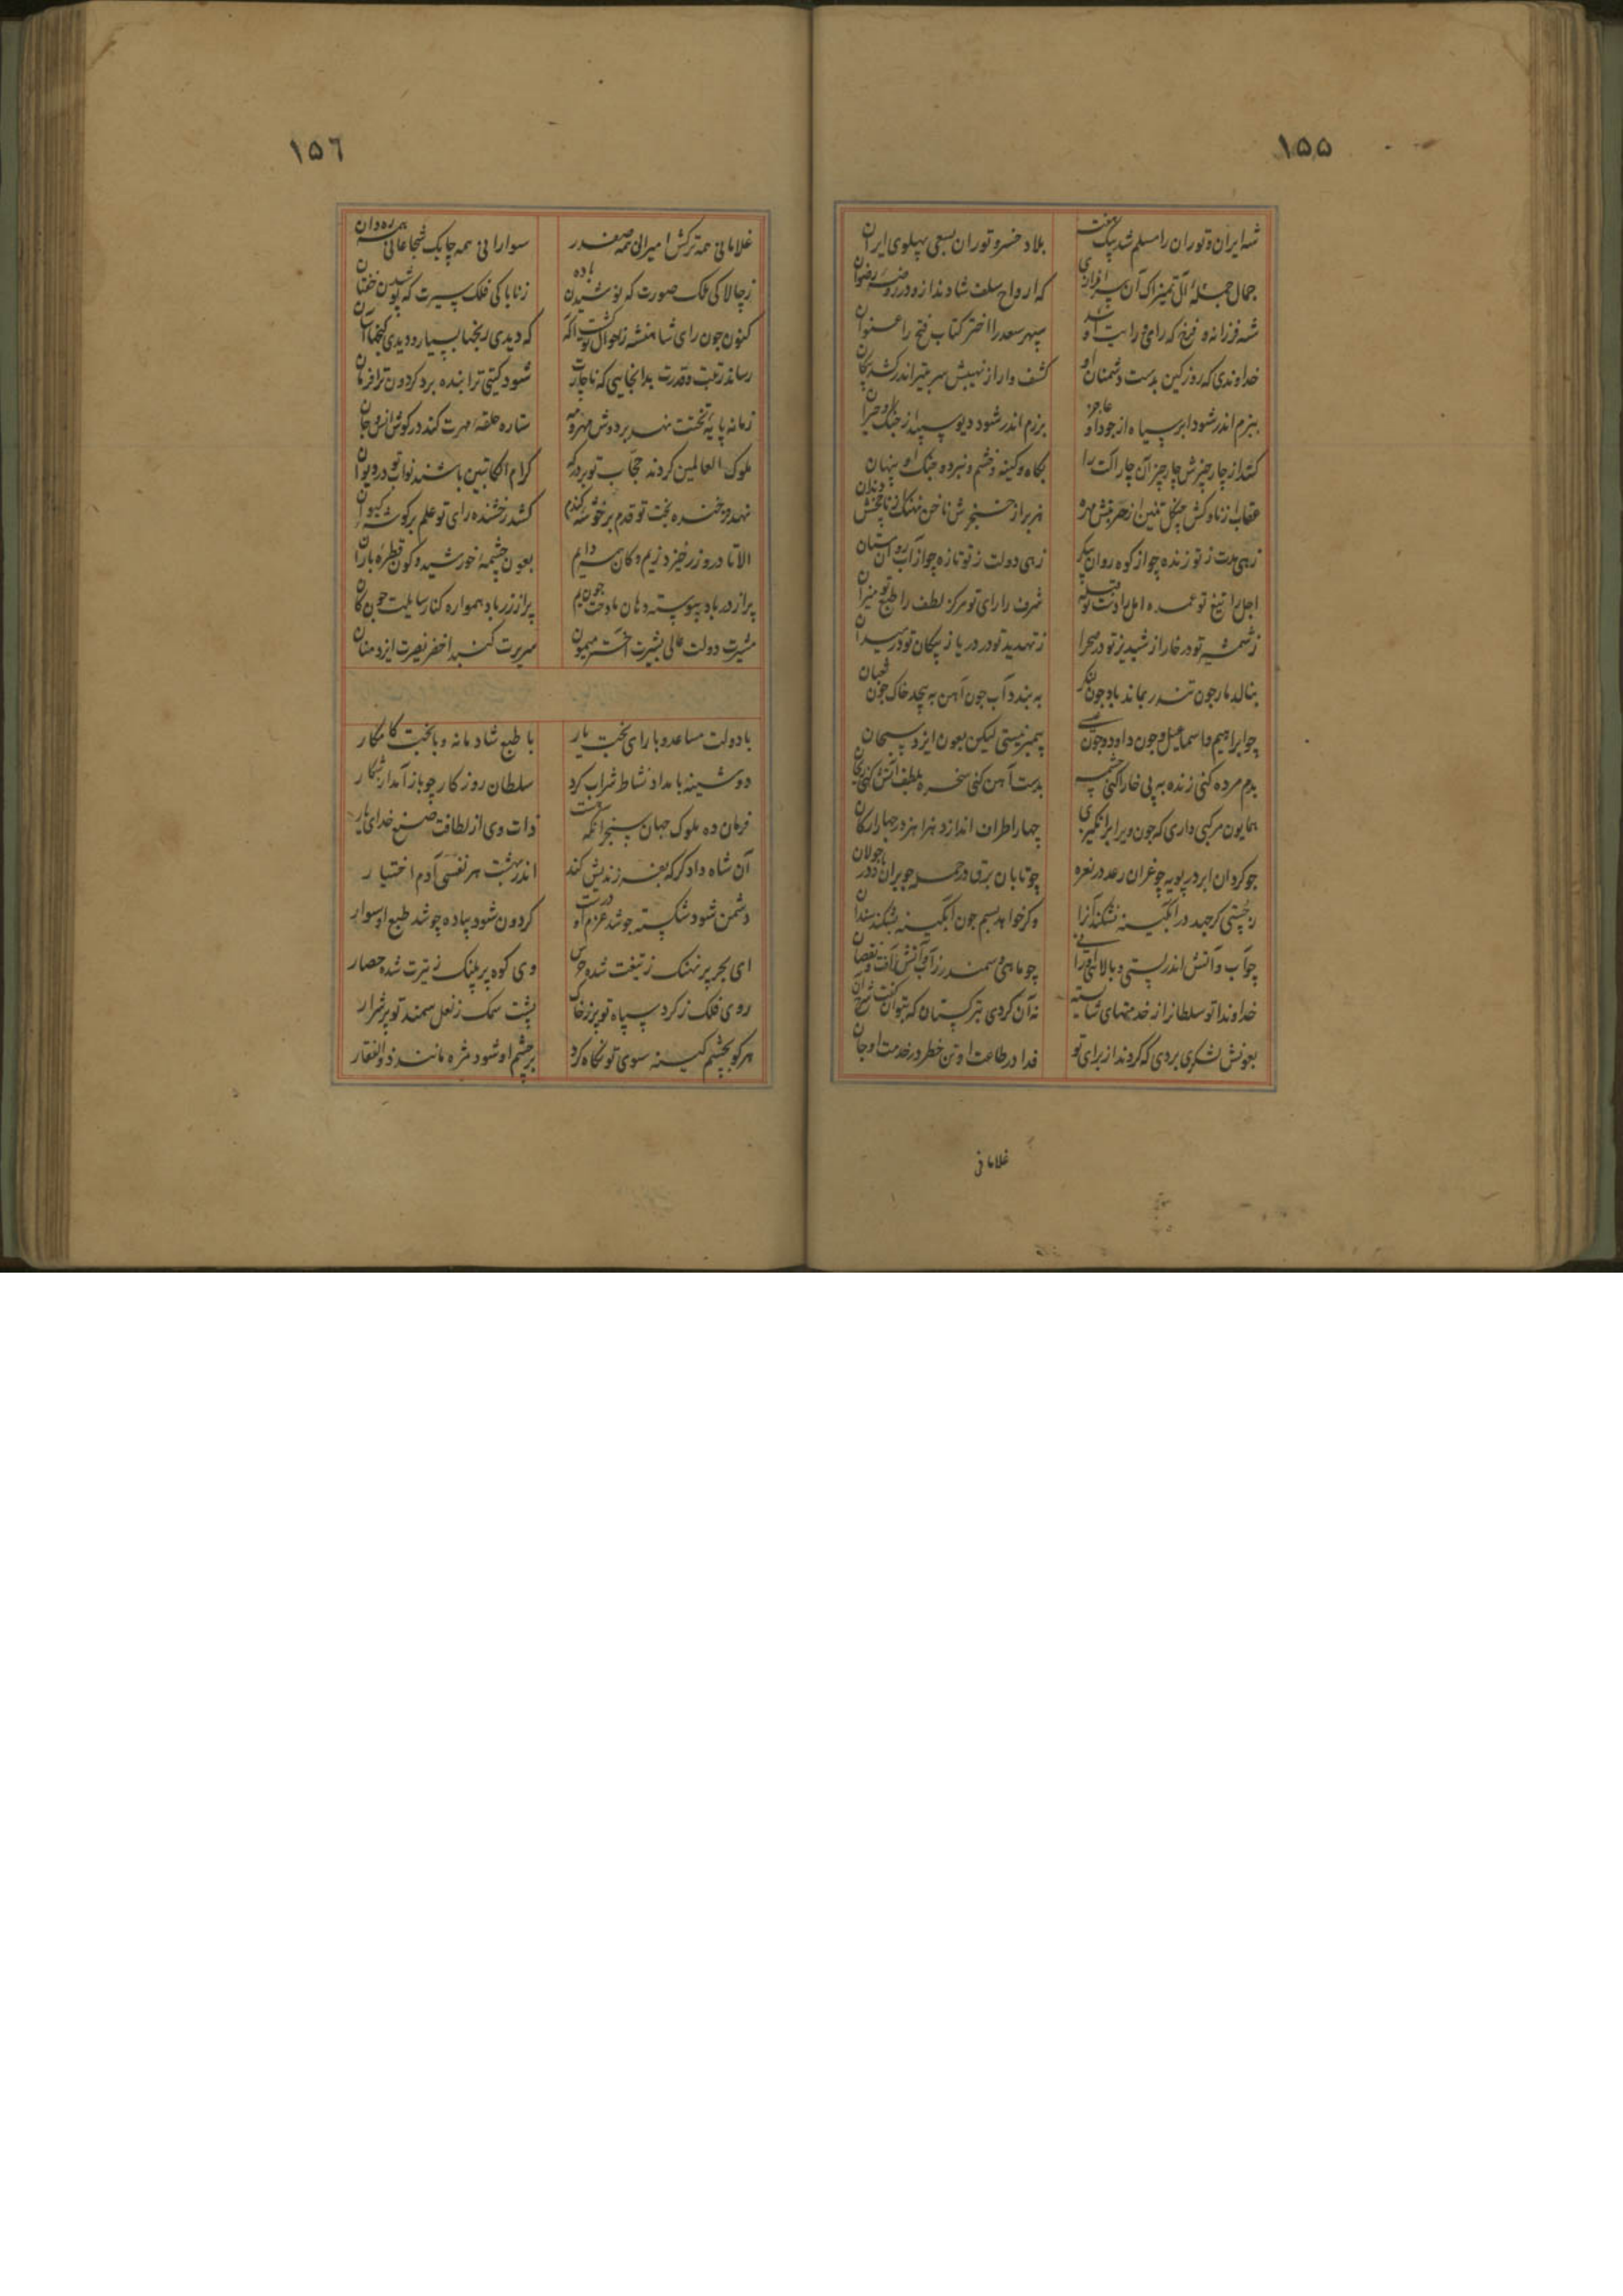 ١٥٥
شه ایران و توران را مسلم شد بیک هفت بلاد خسرو توران بسعی پهلوی ایران
جمال جمله آل تمیزاک آن سرافرازی که ارواح سلف شادند ازو در روضه رضوان
شه فرزانه و فرخ که رای و رایت او شد سپهر سعد را اختر کتاب فتح را عنوان
خداوندی که روز کین بدست دشمنان او کشف وار از نهیبش سر بتیر اندر کشد پیکان
ببزم اندر شود ابر سیاه از جود او عاجز برزم اندر شود دیو سپید از جنگ او حیران
کند از چار چیزش چار چیز آن چار آلت را بگاه و کینه و خشم و نبرد و جنگ او پنهان
عقاب از ناوکش چنگل تنین از هر تنش مهره هزبر از خنجرش ناخن نهنگ از ناچخش دندان
زهی مدت ز تو زنده چو از کوه روان پیکر زهی دولت ز تو تازه چو از آب روان بستان
اجل را تیغ تو عمده امل را دست تو قبله شرف را رای تو مرکز لطف را طبع تو میزان
ز شمشیر تو در خار از شبدیز تو در صحرا ز تهدید تو در دریا ز پیکان تو در میدان
بنالد مار جون تندر بماند باد جون لنگر به بندد آب جون آهن به پیچد خاک جون ثعبان
چو ابراهیم و اسماعیل و جون داود و جون عیسی پیمبر نیستی لیکن بعون ایزد سبحان
بدم مرده کنی زنده به پی خارا کنی چشمه بدست آهن کنی سخره بلطف آتش کنی ریحان
همایون مرکبی داری که جون ویرا برانگیزی چهار اطراف اندازد هزاهز در چهار ارکان
جو کردان ابر در پویه چو غران رعد در نعره چو تابان برق در حمله چو بران دور جولان
ز چستی کر جهد در آبگینه نشکند آنرا و کر خواهد بسم جون آبگینه بشکند سندان
چو آب و آتش اندر پستی و بالا نی او را چو ماهی و سمندر ز آب و آتش آفت و نقصان
خداوندا تو سلطانرا ز خدمتهای شایسته نه آن کردی بترکستان که بتوان گفت شرح آن
بعونش لشکری بردی که کردند از برای تو فدا در طاعت او تن خطر در خدمت او جان
غلامانی
١٥٦
غلامانی همه ترکش امیرانی همه صفدر سوارانی همه چابک شجاعانی همه ره دان
ز چالاکی ملک صورت که نوشیدن باده ز ناباکی فلک سیرت که پوشیدن خفتان
کنون جون رای شاهنشه ز احوال تو گشت آگه که دیدی رنجها بسیار و دیدی گنجها آسان
رساند رتبت و قدرت بدانجایی که ناچارت شود گیتی ترا بنده برد گردون ترا فرمان
زمانه پایه تختت نهد بر دوش مهر و مه ستاره حلقه مهرت کند در گوش انس و جان
ملوک العالمین گردند حجاب تو بر درگه کرام الکاتبین باشند نواب تو در دیوان
نهد رخشنده بخت تو قدم بر خوشه گندم کشد رخشنده رای تو علم بر گوشه کیوان
الا تا در و زر خیزد ز یم و کان سیم دایم بعون چشمه خورشید و کون قطره باران
پر از در باد پیوسته دهان مادحت جون یم پر از زر باد همواره کنار سایلت جون کان
مشیرت دولت عالی بشیرت اختر میمون سریرت گنبد اخضر نصیرت ایزد منان
با دولت مساعد و با رای بخت یار با طبع شادمانه و با بخت کامکار
دوشینه بامداد نشاط شراب کرد سلطان روزگار چو باز آمد از شکار
فرمان ده ملوک جهان سنجر آنکه هست ذات وی از لطافت صنع خدای یار
آن شاه دادگر که بفرزندیش کند اندر بهشت هر نفسی آدم اختیار
دشمن شود شکسته جو شد عزم او درست کردون شود پیاده چو شد طبع او سوار
ای بحر پر نهنک ز تیغت شده حرس وی کوه پر پلنک ز تیرت شده حصار
روی فلک ز کرد سپاه تو پر ز خاک پشت سمک ز نعل سمند تو پر شرار
هر کو بچشم کینه سوی تو نگاه کرد بر چشم او شود مژه مانند ذوالفقار